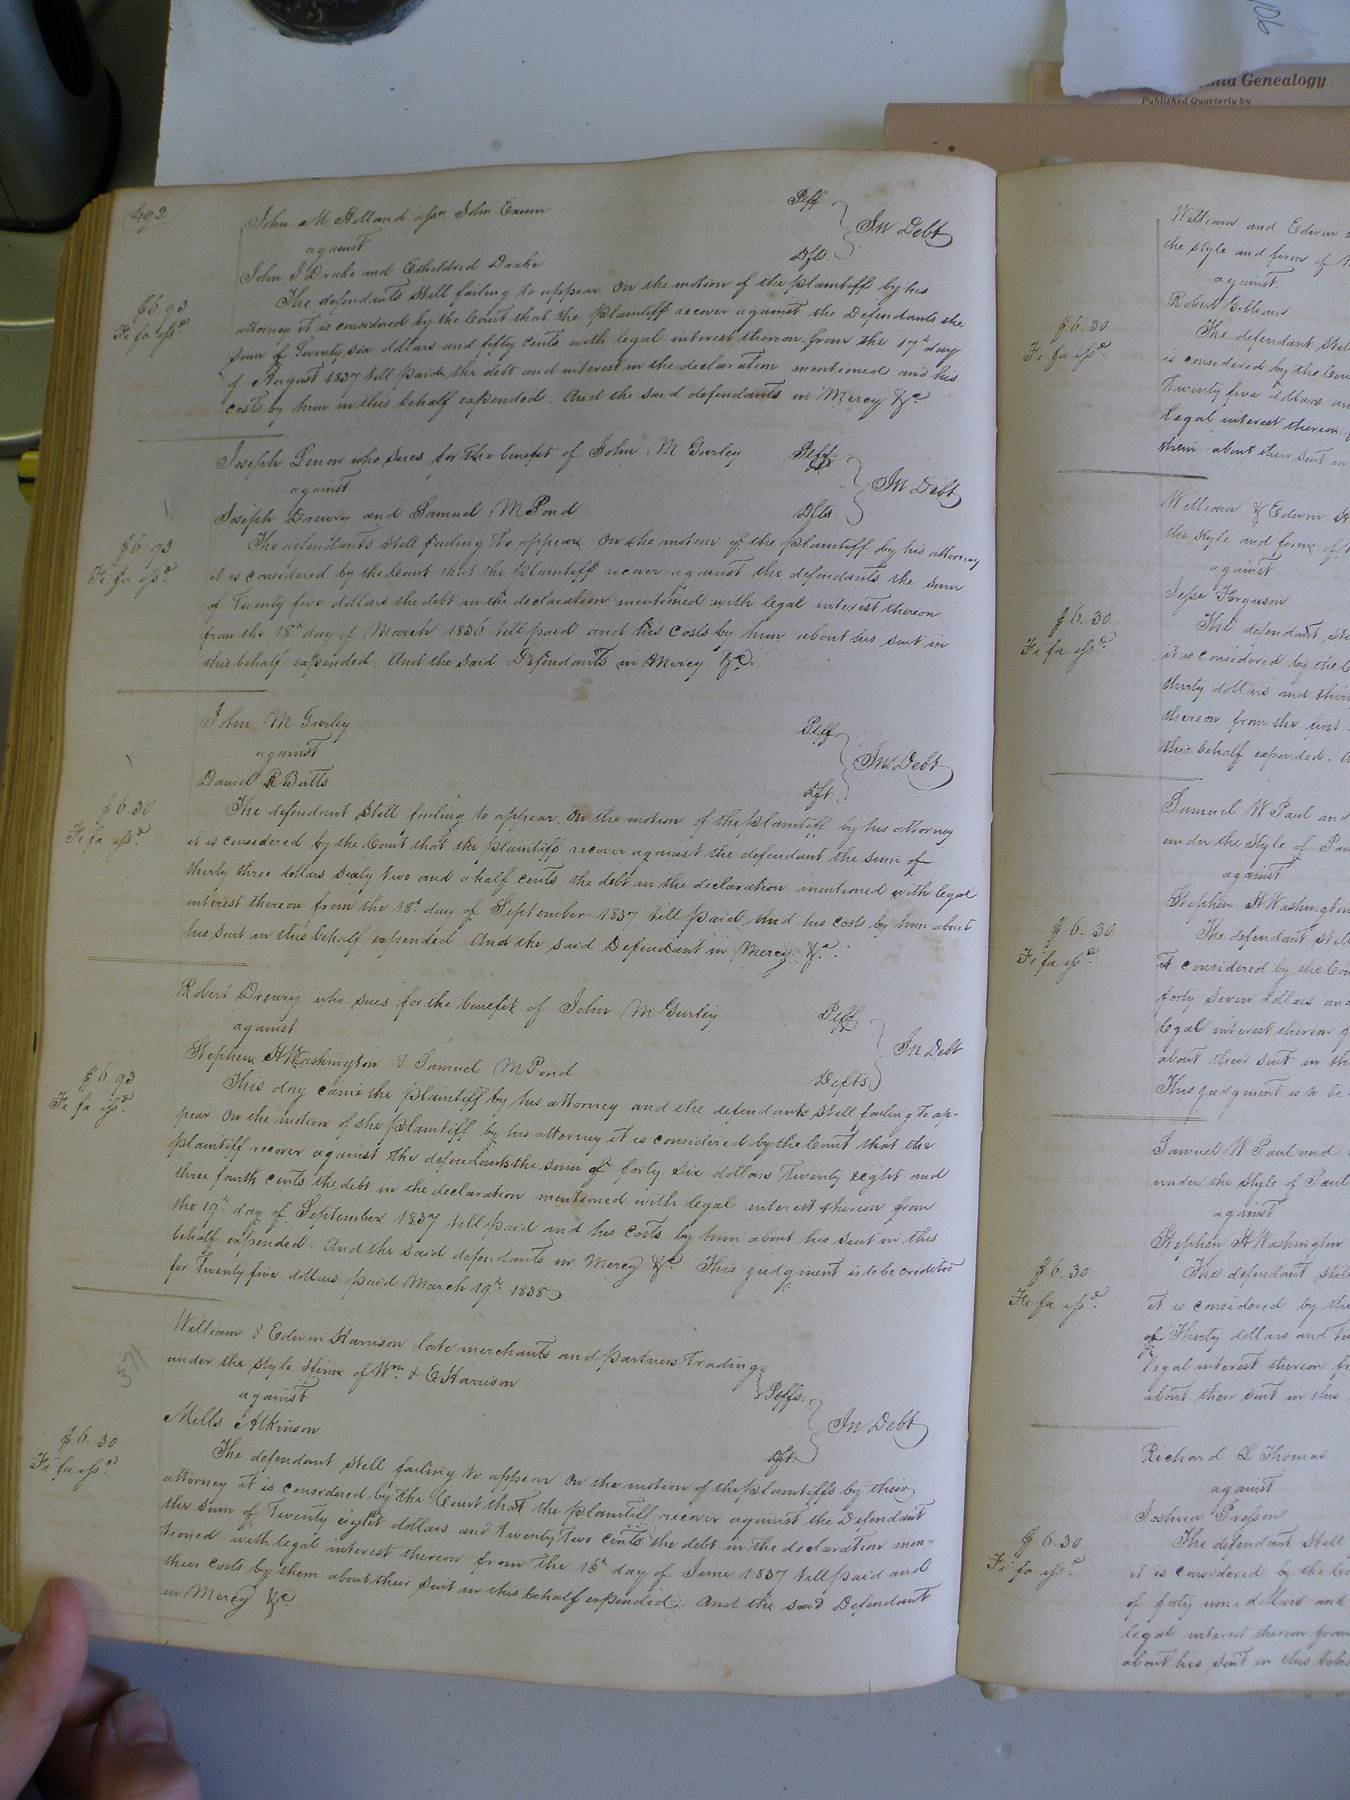 492
John M Holland assee John Exum Plff
against In Debt
John J Drake and Etheldred Drake Dfts.
$6.93
Fi fa issd.
The defendants still failing to appear On the motion of the plaintiff by his
attorney it is considered by the Court that the plaintiff recover against the Defendants the
sum of Twenty six dollars and fifty cents with legal interest thereon from the 17th day
of August 1837 till paid the debt and interest in the declaration mentioned and his
costs by him in this behalf expended. And the said defendants in Mercy &c.
Joseph Lenow who sues for the benefit of John M Gurley Plff.
against In Debt
Joseph Drewry and Samuel M Pond Dfts.
$6.93
Fi fa issd.
The defendants still failing to appear On the motion of the plaintiff by his attorney
it is considered by the Court that the plaintiff recover against the defendants the sum
of Twenty five dollars the debt in the declaration mentioned with legal interest thereon
from the 18th day of March 1836 till paid and his costs by him about his suit in
this behalf expended. And the said Defendants in Mercy &c.
John M Gurley Plff
against In Debt
Daniel R Butts Dft.
$6.30
Fi fa issd.
The defendant still failing to appear On the motion of the plaintiff by his attorney
it is considered by the Court that the plaintiff recover against the defendant the sum of
thirty three dollars sixty two and a half cents the debt in the declaration mentioned with legal
interest thereon from the 18th day of September 1837 till paid. And his costs by him about
his suit in this behalf expended. And the said Defendant in Mercy. &c.
Robert Drewry who sues for the benefit of John M Gurley Plff
against In Debt
Stephen H Washington & Samuel M Pond Defts
$6.93
Fi fa issd.
This day came the plaintiff by his attorney and the defendants still failing to ap-
pear On the motion of the plaintiff by his attorney it is considered by the Court that the
plaintiff recover against the defendants the sum of forty six dollars Twenty eight and
three fourth cents the debt in the declaration mentioned with legal interest thereon from
the 19th day of September 1837 till paid and his costs by him about his suit in this
behalf expended. And the said defendants in Mercy &c. This judgment is to be credited
for Twenty five dollars paid March 19th 1838
William & Edwin Harrison late merchants and partners trading
under the style & firm of Wm. & E Harrison Plffs.
against In Debt
Mills Atkinson dft.
$6.30
Fi fa issd.
The defendant still failing to appear On the motion of the plaintiffs by their
attorney it is considered by the Court that the plaintiff recover against the Defendant
the sum of Twenty eight dollars and twenty two cents the debt in the declaration men-
tioned with legal interest thereon from the 16th day of June 1837 till paid and
their costs by them about their suit in this behalf expended. And the said Defendant
in Mercy &c.
106
Genealogy
Published Quarterly by
William and Edwin
the style and firm of
against
Robert Gilliam
$6.30
Fi fa issd.
The defendant still
is considered by the Cou
Twenty five dollars an
legal interest thereon
them about their suit in
William & Edwin
the style and firm of
against
Jesse Ferguson
$6.30
Fi fa issd.
The defendant sti
it is considered by the C
thirty dollars and thir
thereon from the first
this behalf expended.
Samuel W Paul and
under the style of Pau
against
Stephen H Washington
$6.30
Fi fa issd.
The defendant still
it considered by the Cou
forty seven dollars an
legal interest thereon
about their suit in th
This judgment is to be
Samuel W Paul and
under the style of Paul
against
Stephen H Washington
$6.30
Fi fa issd.
The defendant still
it is considered by the
of Thirty dollars and
legal interest thereon fr
about their suit in this
Richard L Thomas
against
Joshua Presson
$6.30
Fi fa issd.
The defendant still
it is considered by the Co
of forty nine dollars and
legal interest thereon from
about his suit in this beha